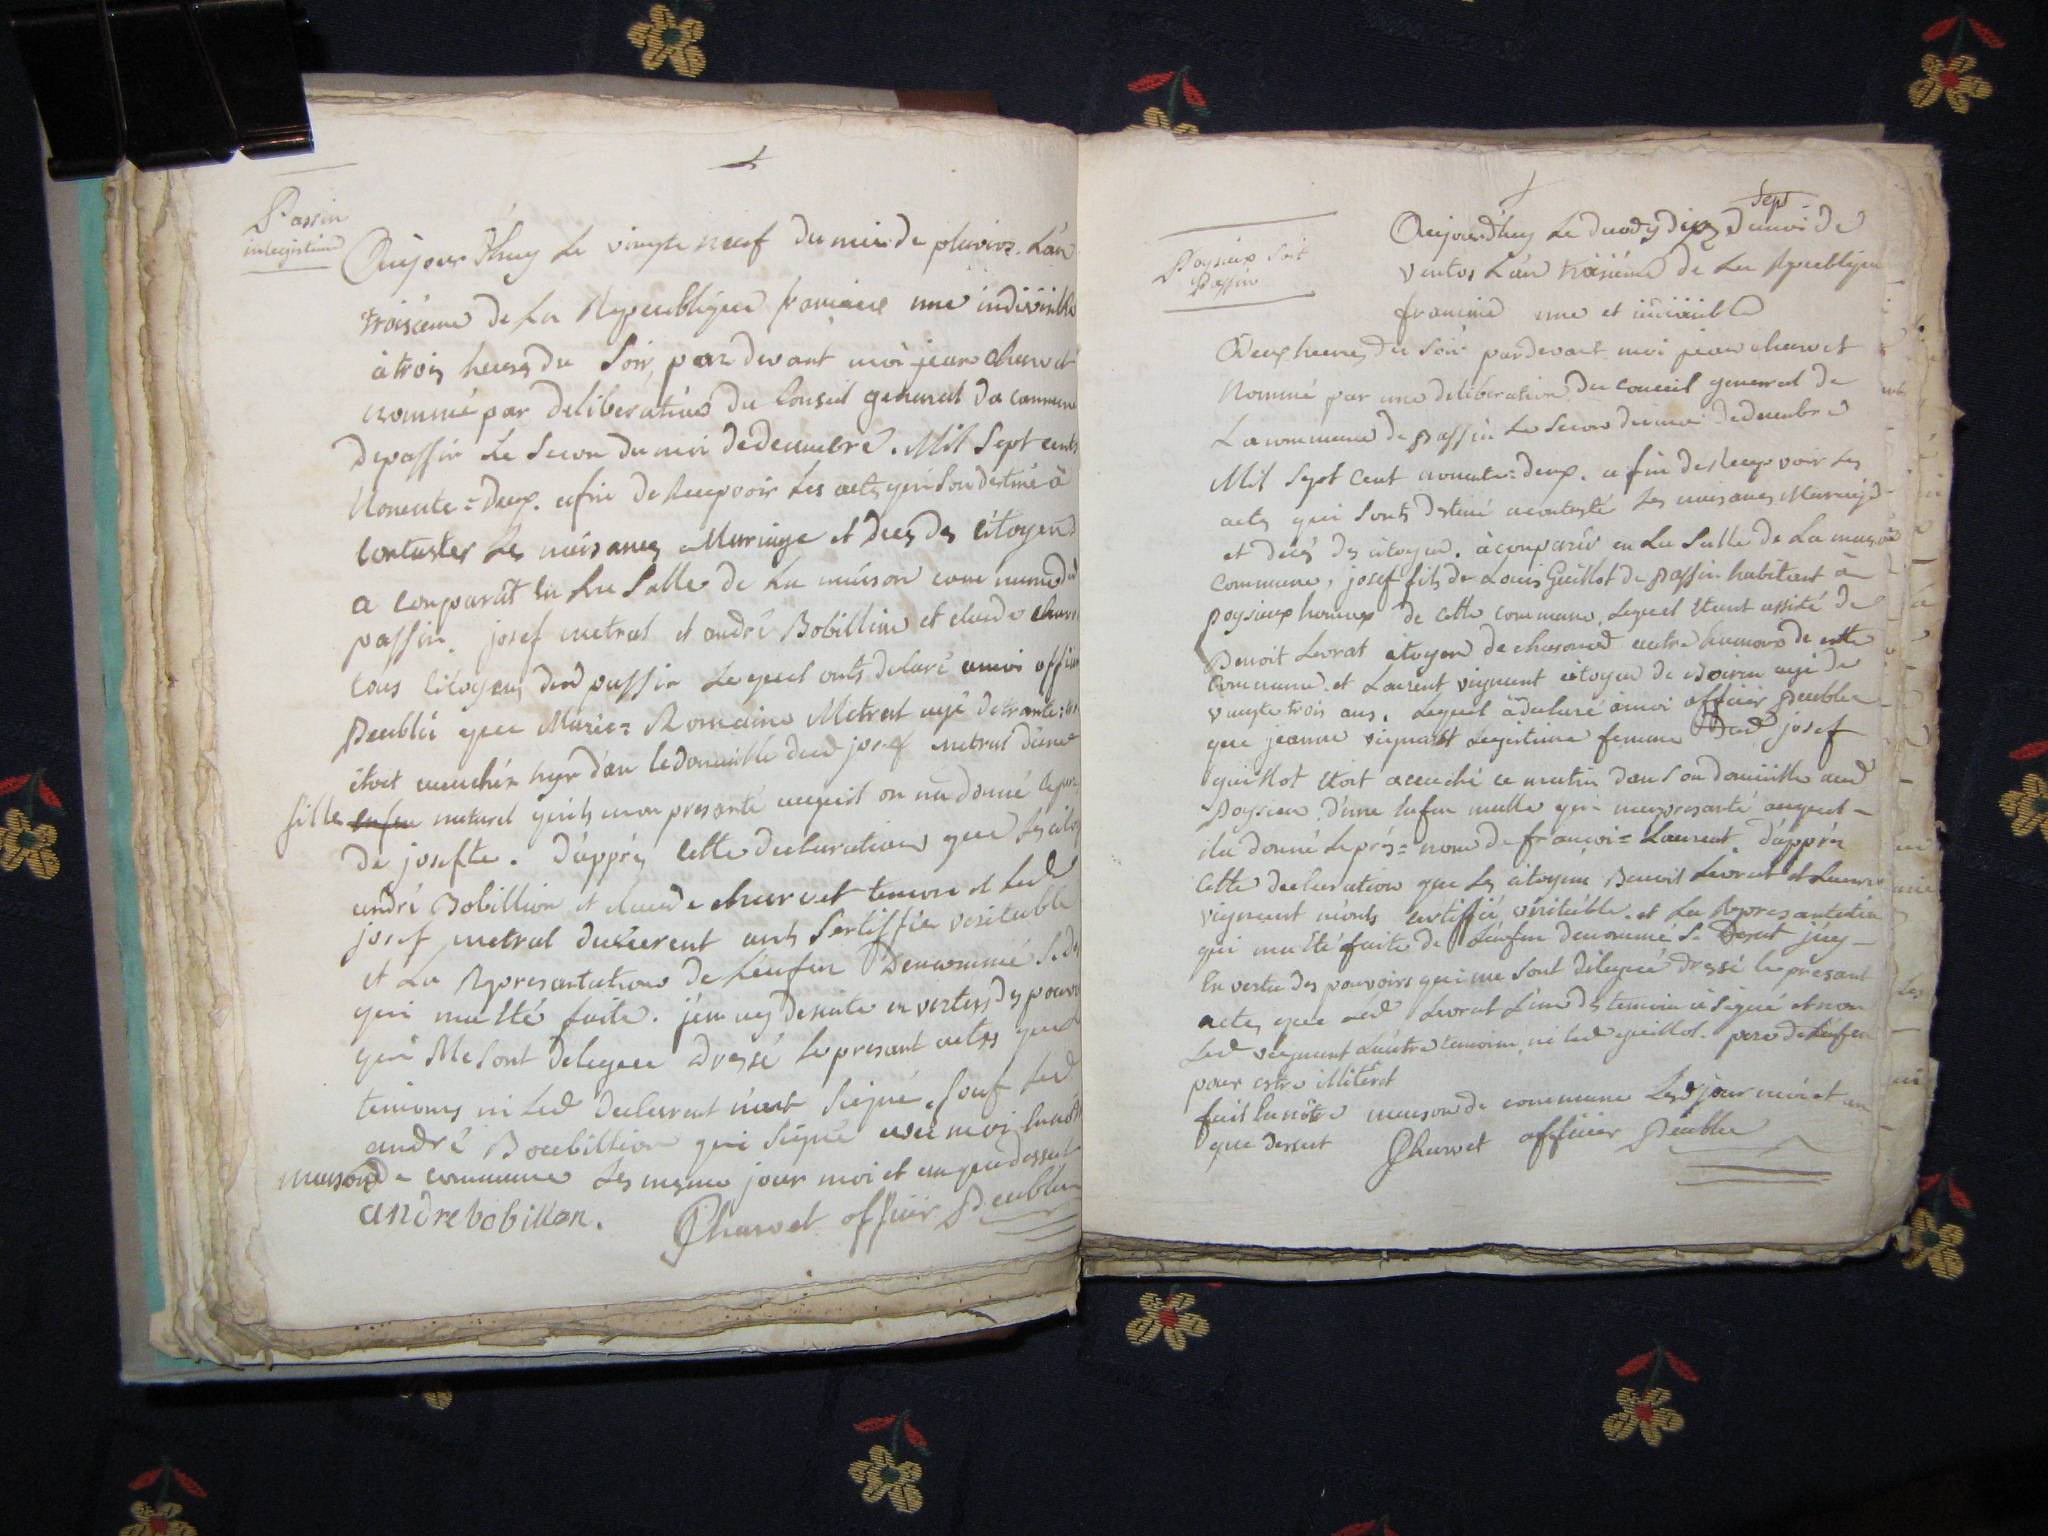 Passin
inlegitime
Aujour d'huy le vingte neuf du moi de pluvios. L'an
troisieme de la Republique francaise une indivisible
à trois heures du Soir, par devant moi jean charvet
nommé par deliberation du Conseil general da commune
depassin Le Secon du moi dedecembre. Mil Sept cents
Nonente = deux. afin de Recepvoir les actes qui Son destiné à
Contaster les naisances Mariage et deces des Citoyens
a Comparût en La Salle de La maison commune dud
passin. josef metral et andré Bobillion et claude charv
tous Citoyens dud passin Lequel onts delaré amoi officier
Peublic que Marie = Romaine Metral agé de trante
étoit acouchér hyr dan ledomicille dud josef metral d'une
fille enfen naturel quils mon presanté auquel on na donné le pre
de josefte. D'apprés Cette declaration que les cito
andré Bobillion et claude charvet temoin et Led
josef metral declerent onts Sertiffié veritable
et La Representation de L'enfen Denommé
qui ma eté faite. j'en ay desuite en vertus des pouvoi
qui Me Sont Deleguer Dressé Le presant actes que
temoins ni Led declarent n'ont Signé. Souf Led
andré Boubillion qui Signe avec moi
maison de commune Les mesme jour moi et an que dessut
andre bobillon. Charvet officier Peublic
Sept
Poysieux Soit
Passin
Aujourd'huy Le duody dix du moi de
ventos L'an troisiéme de La Republique
francaise une et indivisible
Deux heures du Soir pardevant moi jean charvet
Nommé par une deliberation du Conceil general de
La commune de passin Le Secon du moi dedecembre
Mil Sept Cent nonente = deux. a fin de Recepvoir Les
actes qui Sonts destiné acontasté Les naisances Mariages
et decés des citoyen. à comparûs en La Salle de La maison
Commune, josef fils de Louis Guillot de passin habitant à
poysieux hameux de cette commune, Lequel etant assité de
Benoit Levrat citoyen de chasonod autre hameaux de cette
Commune. et Laurent vignant citoyen de agé de
vingte trois ans. Lequel à declaré à moi officier Peublic
que jeanne vignant Legitime femme Dud josef
guillot etoit acouché ce matin dan Son domicille aud
Poysieu D'une enfen malle qui mapresanté auquel
ila donné Le pré = nom de françoi = Laurent. d'apprés
Cette declaration que Les citoyens Benoit Levrat et Laurent
vignant m'onts certiffié véritable. et La Representation
qui ma eté faite de L'enfen denommé j'ay
En vertu des pouvoirs qui me Sont délegué dressé le presant
actes que Led Levrat L'un des temoin à Signé et non
Led vignant L'autre temoin, ni Led guillot. pere de Lenfen
pour estre illitéret
fait En nôtre maison de commune Lesd jour moi et an
que dessut Charvet officier Peublic